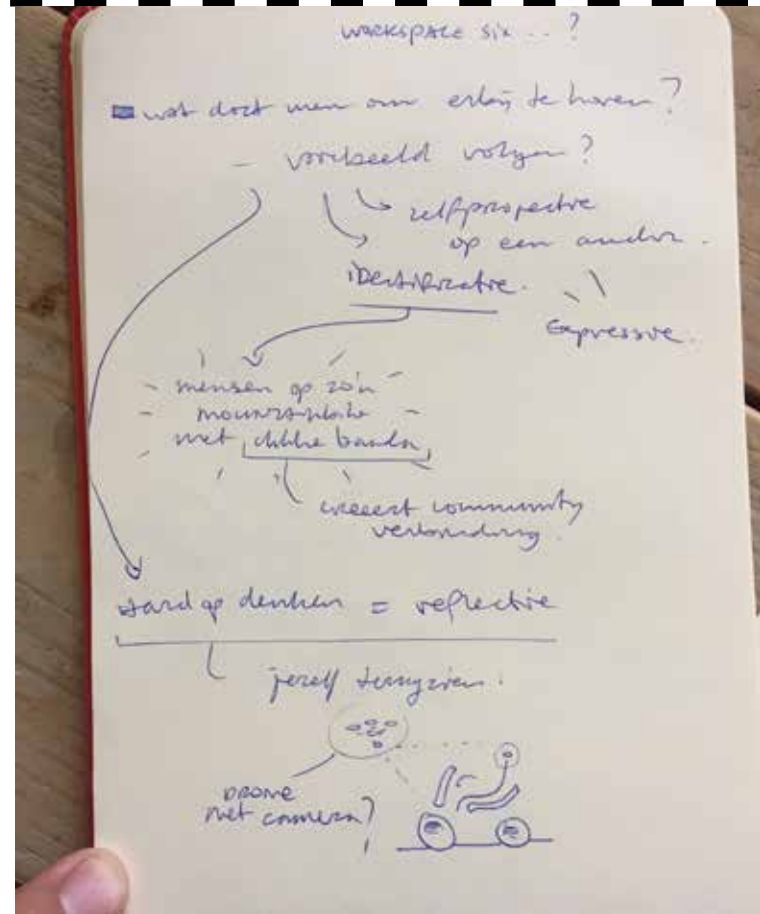 WORKSPACE six .. ?
wat doet men om erbij te horen?
- voorbeeld volgen?
zelfprospectie
op een ander.
identificatie.
Expressie.
mensen op zo'n
met dikke banden
creeert community
verbinding.
hardop denken = reflectie
jezelf terugzien.
DRONE
met camera?